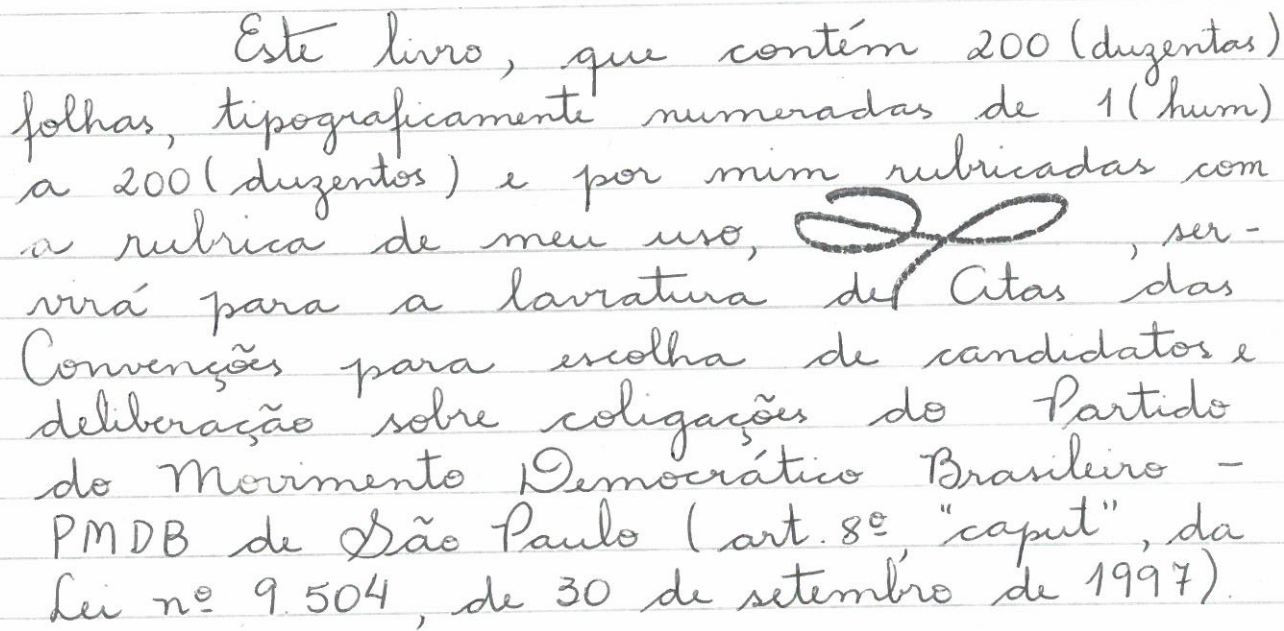 Este livro, que contém 200 (duzentas)
folhas, tipograficamente numeradas de 1 (hum)
a 200 (duzentos) e por mim rubricadas com
a rubrica de meu uso, , ser-
virá para a lavratura de Atas das
Convenções para escolha de candidatos e
deliberação sobre coligações do Partido
do Movimento Democrático Brasileiro -
PMDB de São Paulo (art. 8º, "caput", da
Lei nº 9.504, de 30 de setembro de 1997).